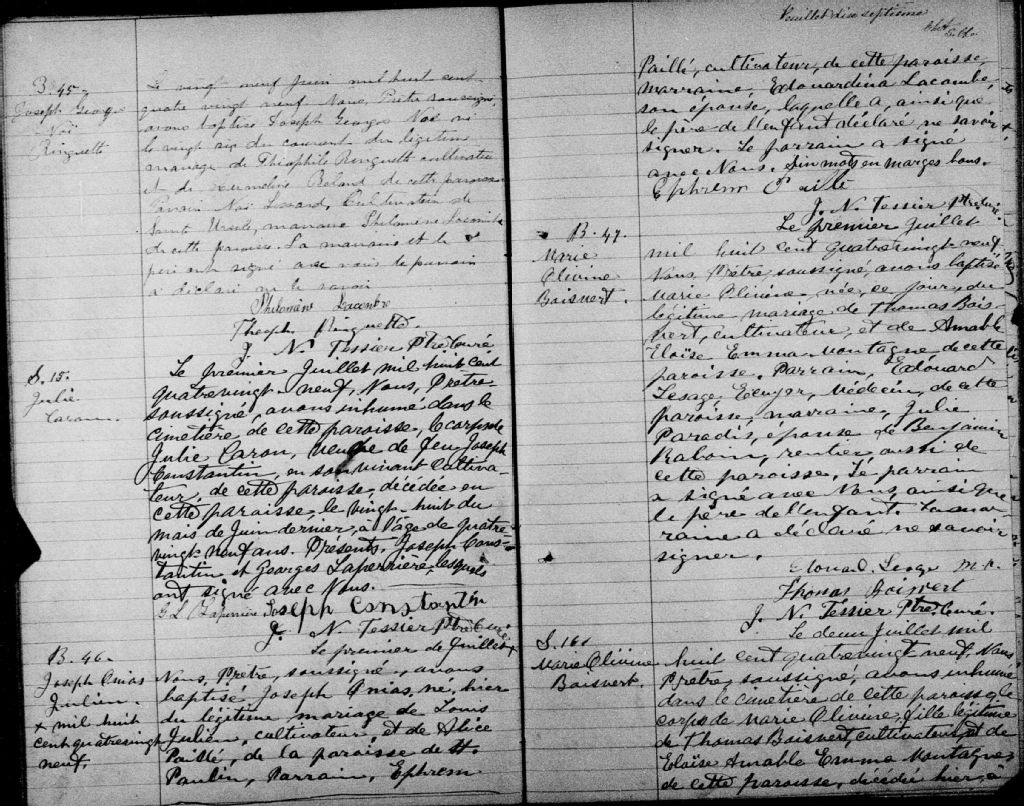 B. 45.
Joseph George
Noë
Ringuette
Le vingt neuf Juin mil huit cent
quatre vingt neuf Nous, Prêtre soussigné,
avons baptisé Joseph Georges Noë né
le vingt six du courant du légitime
mariage de Théophile Ringuette cultivateur
et de Hermeline Beland de cette paroisse
Parain Noë Lessard, Cultivateur de
Saint Ursule, maraine Philomène Lacombe
de cette paroisse. La maraine et le
père ont signé avec nous le parrain
a déclaré ne le savoir
Philomène Lacombe
Théoph Ringuette
J. N. Tessier Ptre Curé
S. 15.
Julie
Caron.
Le premier Juillet mil huit cent
quatrevingt neuf, Nous, Prêtre
soussigné, avons inhumé dans le
cimetière de cette paroisse, le corps de
Julie Caron, veuve de feu Joseph
Constantin, en son vivant cultiva-
teur, de cette paroisse, décédée en
cette paroisse, le vingt-huit du
mois de Juin dernier, à l'âge de quatre-
vingt-neuf ans. Présents, Joseph Cons-
tantin et Georges Laperrière, lesquels
ont signé avec Nous.
G L Laperrière Joseph Constantin
J. N. Tessier Ptre Curé.
B. 46.
Joseph Onias
Julien.
+ mil huit
cent quatrevingt
neuf.
Le premier de Juillet +
Nous, Prêtre, soussigné, avons
baptisé Joseph Onias, né, hier
du légitime mariage de Louis
Julien, cultivateur, et de Alice
Paillé, de la paroisse de St.
Paulin, Parrain, Ephrem
Feuillet dix septième
Paillé, cultivateur, de cette paroisse,
marraine, Edouardina Lacombe,
son épouse, laquelle a, ainsi que
le père de l'enfant déclaré ne savoir
signer. Le parrain a signé
avec Nous. Six mots en marge bons.
Ephrem Paillé
J. N. Tessier Ptre Curé.
B. 47.
Marie
Olivine
Boisvert.
Le premier Juillet
mil huit cent quatrevingt-neuf,
Nous, Prêtre soussigné, avons baptisé
Marie Olivine née, ce jour, du
légitime mariage de Thomas Bois-
vert, cultivateur, et de Amable
Eloïse Emma Montagne de cette
paroisse. Parrain, Edouard
Lesage, Ecuyer, Médecin, de cette
paroisse, marraine, Julie
Paradis, épouse de Benjamin
Baboin, rentier aussi de
cette paroisse. Le parrain
a signé avec Nous, ainsi que
le père de l'enfant. La mar-
raine a déclaré ne savoir
signer.
Edouard Lesage M.D.
Thomas Boisvert
J. N. Tessier Ptre Curé.
S. 16.
Marie Olivine
Boisvert.
Le deux Juillet mil
huit cent quatrevingt neuf. Nous
Prêtre, soussigné, avons inhumé
dans le cimetière de cette paroisse, le
corps de Marie Olivine, fille légitime
de Thomas Boisvert, cultivateur, et de
Eloïse Amable Emma Montagne
de cette paroisse, décédée hier, à